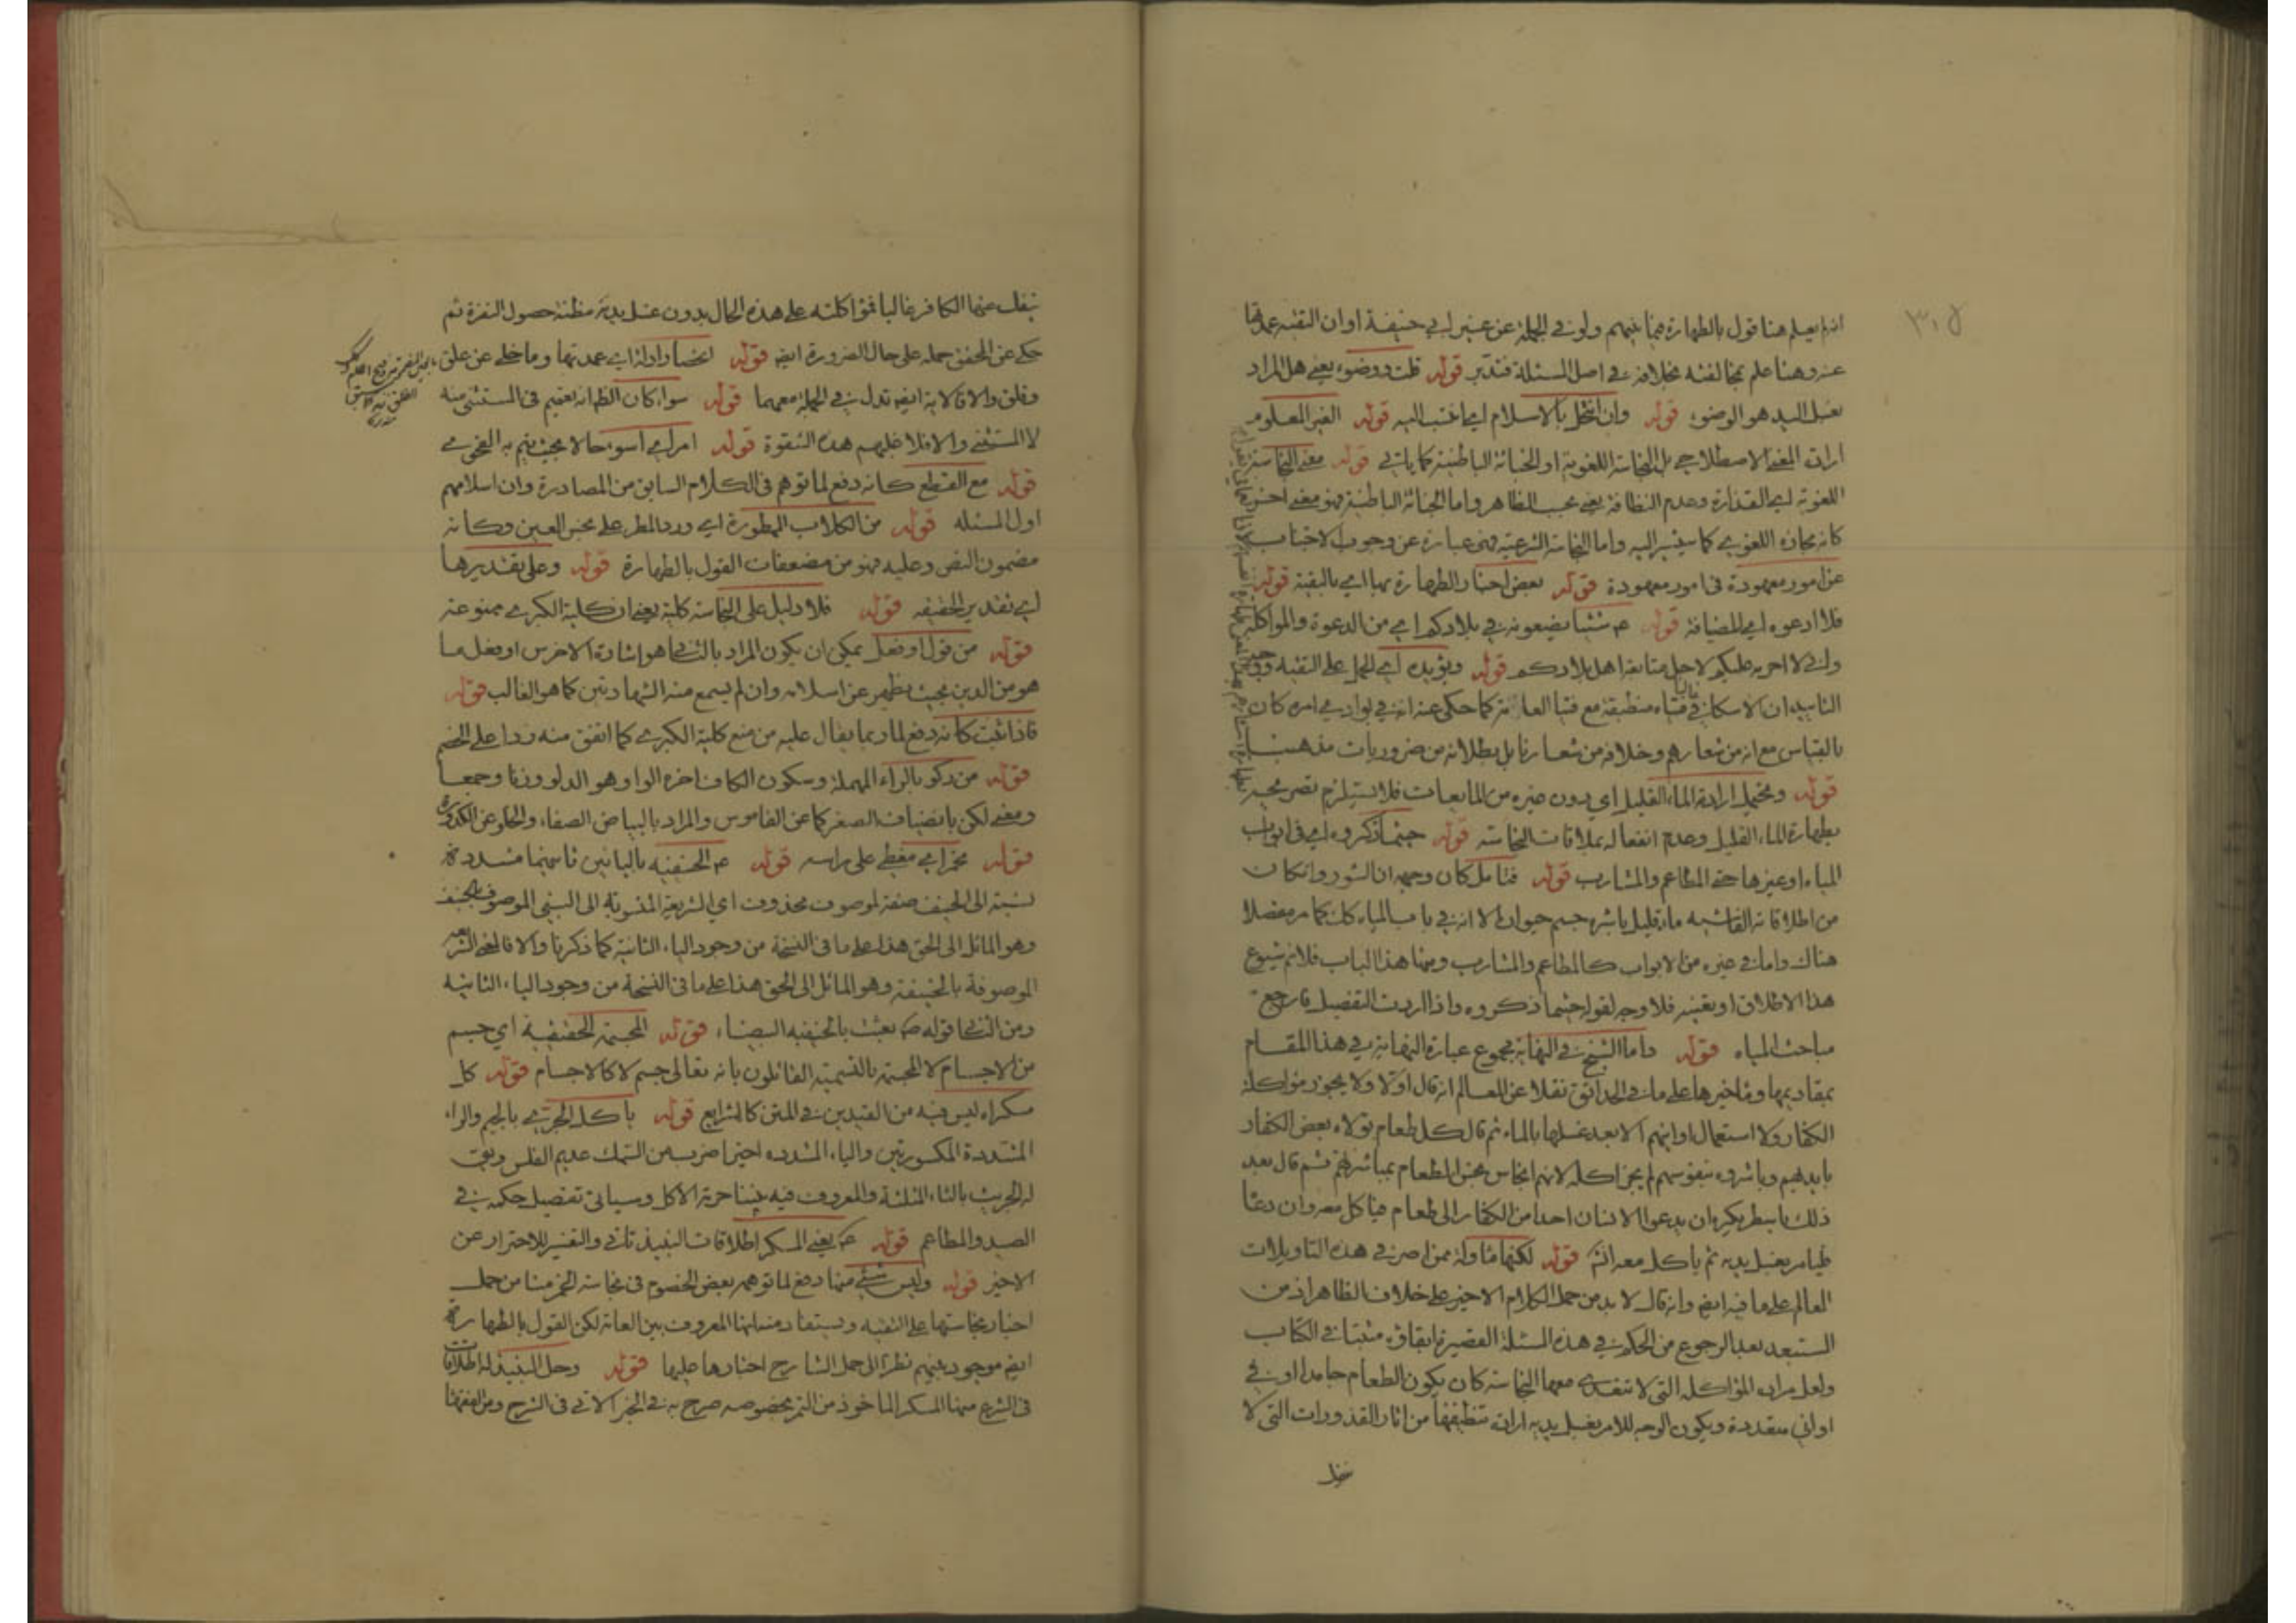 ٣٠٥
انه لم يعلم هنا قول بالطهارة فيما بينهم ولو في الجملة عن غير ابي حنيفة او ان التقية عمدتها
عنه وهنا علم مخالفته بخلافه في اصل المسئلة فتدبر قوله قلت ووضوء يعني هل المراد
بغسل اليد هو الوضوء قوله وان انتحل بالاسلام اي انتسب اليه قوله الغير المعلوم
ارادة المعنى الاصطلاحي بل النجاسة اللغوية او الخباثة الباطنية كما ياتي قوله معنى النجاسة
اللغوية اي القذارة وعدم النظافة يعني بحسب الظاهر واما الخباثة الباطنية فهو معنى اخر
كانه مجازه اللغوي كما سيشير اليه واما النجاسة الشرعية فهي عبارة عن وجوب الاجتناب
عن امور معهودة في امور معهودة قوله بعض اخبار الطهارة بها اي بالتقية قوله
فلا ادعوه اي للضيافة قوله ع شيئا يضعونه في بلادكم اي من الدعوة والمواكلة
واني لا احرمه عليكم لاجل متابعة اهل بلادكم قوله ويؤيده اي الحمل على التقية ووجه
التاييد ان الاسكافي فتياه غالبا منطبقة مع فتيا العامة كما حكي عنه انه في بوادي امره كان
بالقياس مع انه من شعارهم وخلافه من شعارنا بل بطلانه من ضروريات مذهبنا
قوله ويحتمل ارادة الماء القليل اي دون غيره من المايعات فلا يستلزم تصريحه
بطهارة الماء القليل وعدم انفعاله بملاقات النجاسة قوله حيثما ذكروه اي في ابواب
المياه او غيرها حتى المطاعم والمشارب قوله فتامل كان وجهه ان السؤر وان كان
من اطلاقاته الفاشية ماء قليل باشره جسم حيوان الا انه في باب المياه كان كما مر مفصلا
هناك واما في غيره من الابواب كالمطاعم والمشارب ومنها هذا الباب فلا لم شيوع
هذا الاطلاق او تعينه فلا وجه لقوله حيثما ذكروه واذا اردت التفصيل فارجع
مباحث المياه قوله واما الشيخ في النهاية مجموع عبارة النهاية في هذا المقام
بمقاديمها وماخيرها على ما في الحدائق نقلا عن المعالم انه قال اولا ولا يجوز مواكلة
الكفار ولا استعمال اوانيهم الا بعد غسلها بالماء ثم قال كل طعام تولاه بعض الكفار
بايديهم وباشروه بنفوسهم لم يجز اكله لانهم انجاس ينجس الطعام بمباشرتهم ثم قال بعد
ذلك باسطر يكره ان يدعو الانسان احدا من الكفار الى طعام فياكل معه وان دعا
فليامره بغسل يديه ثم ياكل معه انشاء قوله لكنها ماولة ممن اصر في هذه التاويلات
المعالم على ما فيه ايضا وانه قال لا بد من حمل الكلام الاخير على خلاف الظاهر اذ من
المستبعد بعد الرجوع من الحكم في هذه المسئلة القصيرة ابقاؤه مثبتا في الكتاب
ولعل مراده المؤاكلة التي لا تتعدى معها النجاسة كان يكون الطعام جامدا او في
اواني متعددة ويكون الوجه للامر بغسل يديه ارادة تنظيفها من اثار القذورات التي لا
ينفك عنها الكافر غالبا فمؤاكلته على هذه الحال بدون غسل يديه مظنة حصول النفرة ثم
حكى عن المحقق حمله على حال الضرورة ايضا قوله اعتضاد ادلة اي عمدتها وما خلي عن علق
وقلق والا فالاية ايضا تدل في الجملة معهما قوله سواء كان الظ انه تعميم في المستثنى منه
لا المستثنى والا فلا خليهم هذه الشقوة قوله امر اي اسوء حالا بحيث يتم به الفحوى
قوله مع القطع كانه دفع لما توهم في الكلام السابق من المصادرة وان اسلامهم
اول المسئلة قوله من الكلاب الممطورة اي ورد المطر على نجس العين وكانه
مضمون النص وعليه فهو من مضعفات القول بالطهارة قوله وعلى تقديرها
اي تقدير الحقيقة قوله فلا دليل على النجاسة كلية يعني ان كلية الكبرى ممنوعة
قوله من قول او فعل يمكن ان يكون المراد بالثاني هو اشارة الاخرس او فعل ما
هو من الدين بحيث يظهر عن اسلامه وان لم يسمع منه الشهادتين كما هو الغالب قوله
فاذا ثبت كانه دفع لما ربما يقال عليه من منع كلية الكبرى كما اتفق منه ردا على الخصم
قوله من ركو بالراء المهملة وسكون الكاف اخره الواو وهو الدلو وزنا وجمعا
ومعنى لكن بانضياف الصغر كما عن القاموس والمراد بالبياض الصفاء والخلو عن الكدورة
قوله مخمر اي مغطى على راسه قوله ع الحنيفية باليائين ثانيهما مشددة
نسبة الى الحنيف صفة لموصوف محذوف اي الشريعة المنسوبة الى النبي الموصوف بالحنيف
وهو المائل الى الحق هذا على ما في النسخة من وجود الياء الثانية كما ذكرنا والا فالمعنى الشريعة
الموصوفة بالحنيفة وهو المائل الى الحق هذا على ما في النسخة من وجود الياء الثانية
ومن الثاني قوله ص بعثت بالحنيفية البيضاء قوله المجسمة الحقيقية اي جسم
من الاجسام لا المجسمة بالتسمية القائلون بانه تعالى جسم لا كالاجسام قوله كل
مسكر اه ليس فيه من القيدين في المتن كالشرايع قوله ياكل الجري بالجيم والراء
المشددة المكسورتين والياء المشددة اخيرا ضرب من السمك عديم الفلس ويق
له الجريث بالثاء المثلثة والمعروف فيه بيننا حرمة الاكل وسياتي تفصيل حكمه في
الصيد والمطاعم قوله ع يعني المسكر اطلاقات النبيذ تاتي والتفسير للاحتراز عن
الاخير قوله وليس شيء منها دفع لما توهمه بعض الخصوم في نجاسة الخمر منا من حمل
اخبار نجاستها على التقية ويستفاد منه انها المعروف بين العامة لكن القول بالطهارة
ايضا موجود بينهم نظرا الى حمل الشارح اخبارها عليها قوله وحل النبيذ له اطلاقات
في الشرع منها المسكر الماخوذ من التمر بخصوصه صرح به في الخبر الاتي في الشرح ومن الفقها